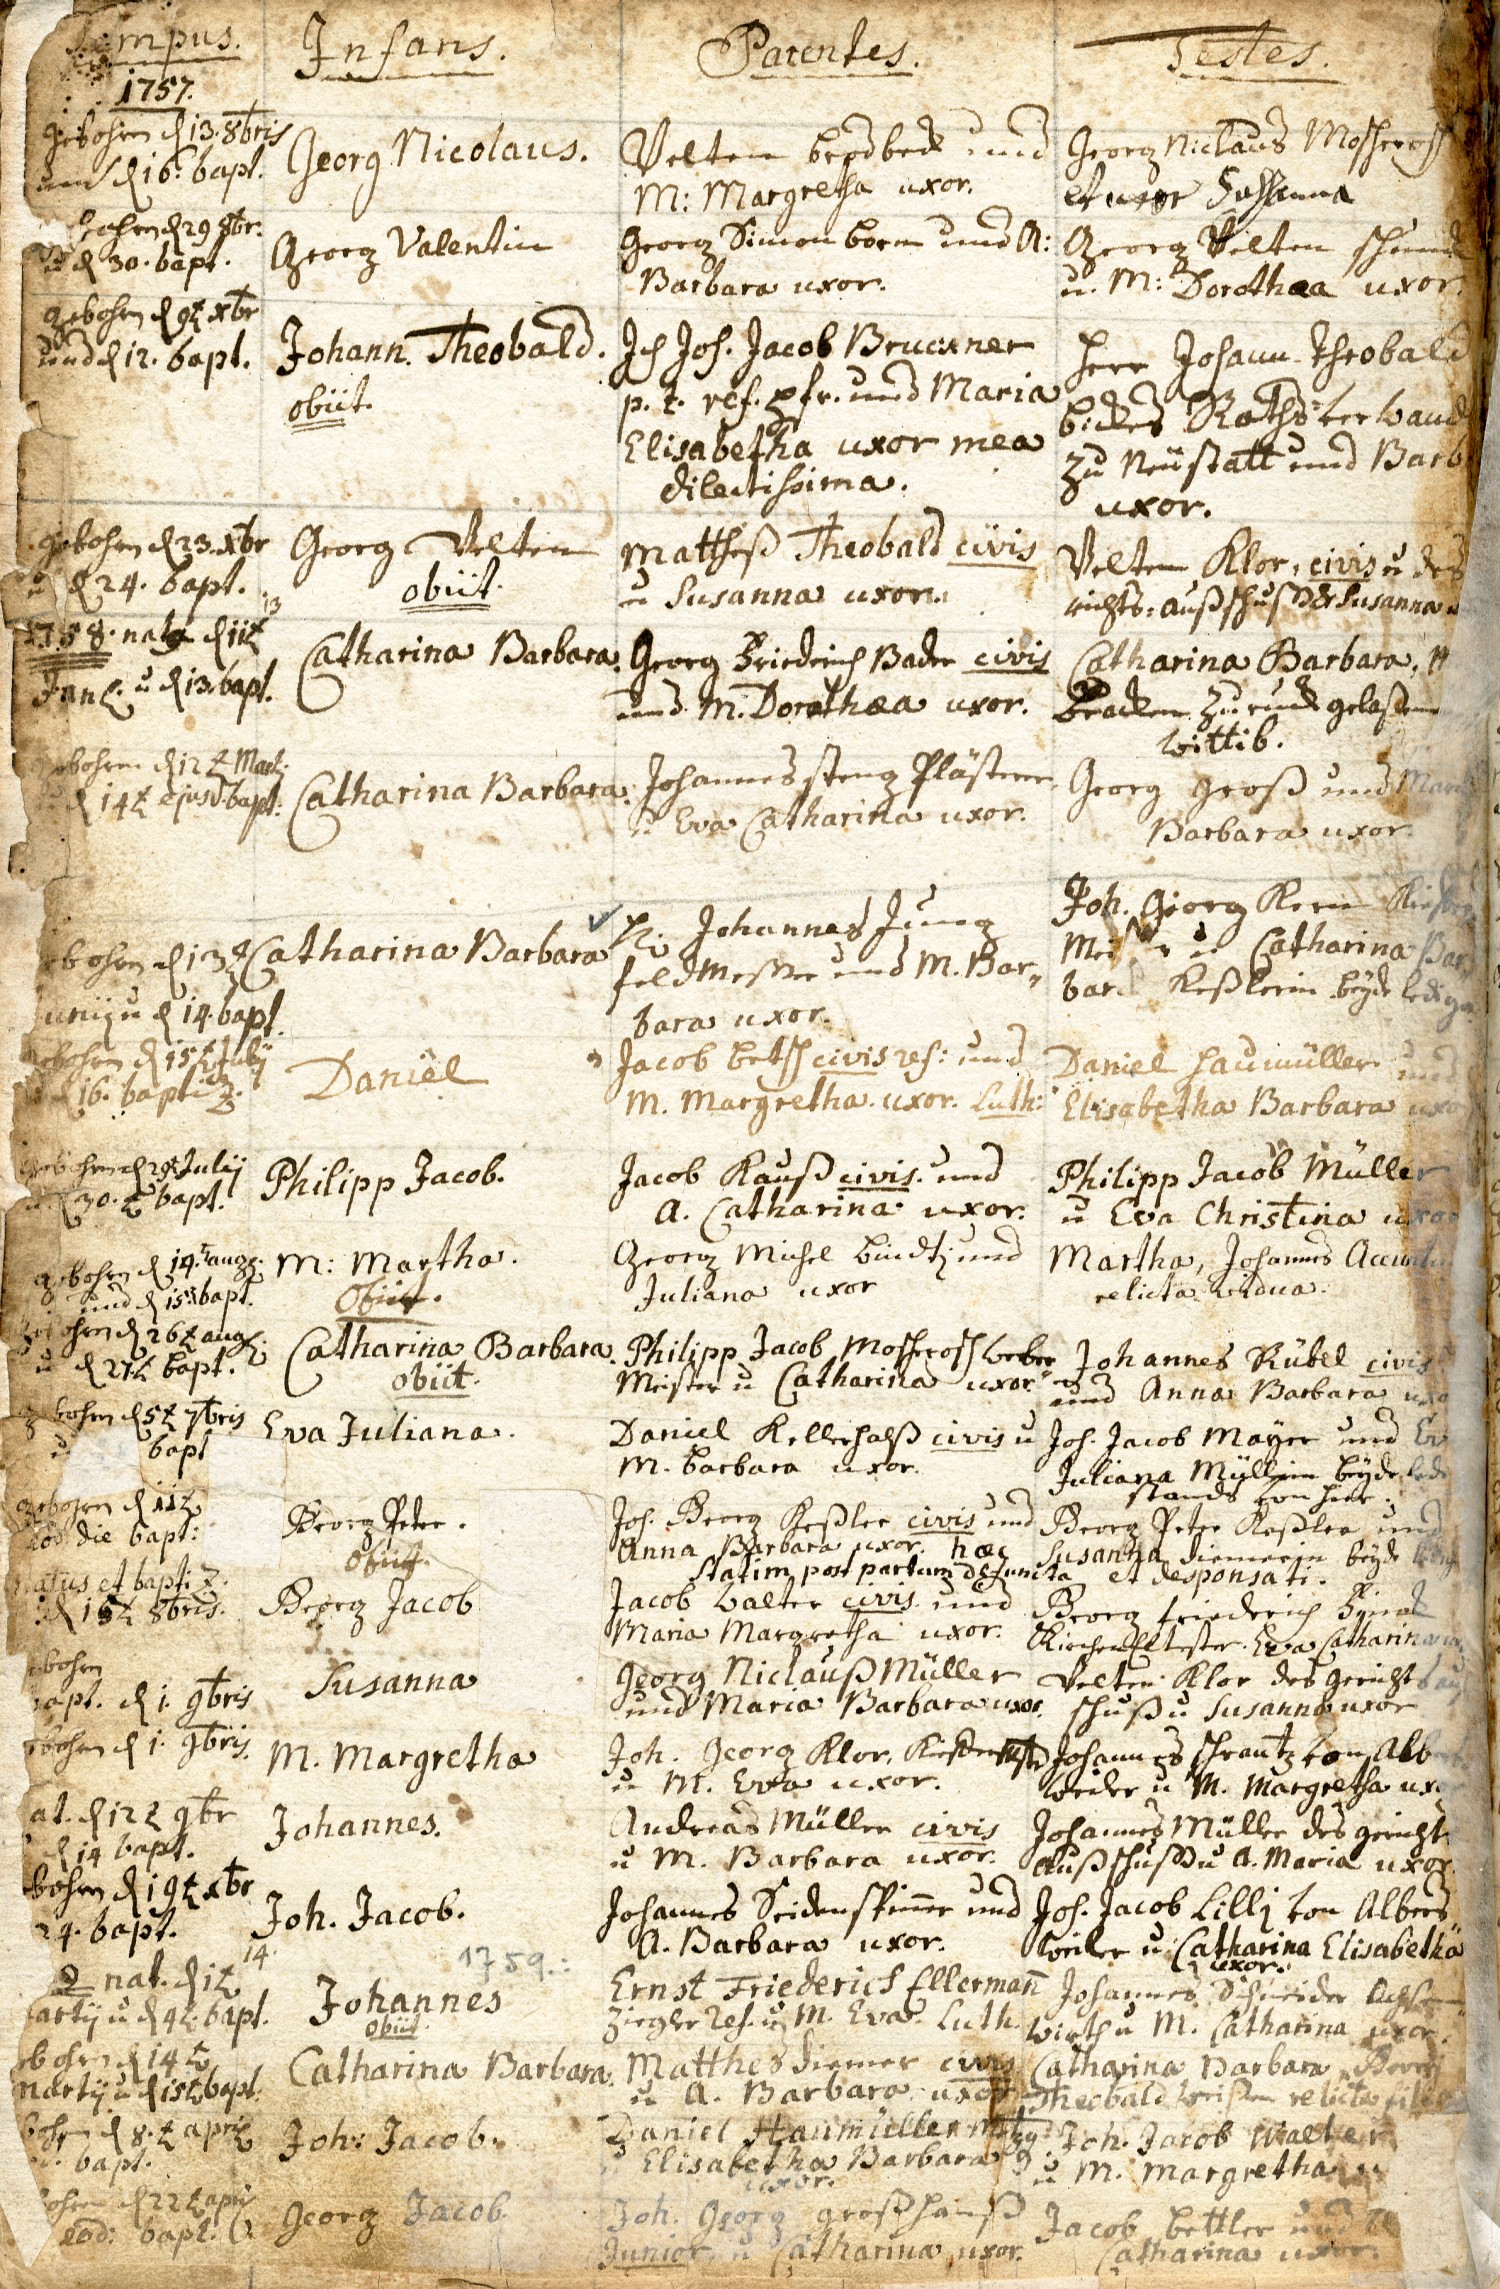 Tempus. Infans. Parentes. Testes.
1757.
gebohren d 13. 8bris
und d 16. bapt.
Georg Nicolaus.
Velten und
M: Margretha uxor.
Georg Niclaus Moscherosch
et uxor Susanna
d 29 8br.
u d 30. bapt.
Georg Valentin
Georg Simon born und A:
Barbara uxor.
Georg Velten
u. M: Dorothea uxor.
gebohren d 9t xbr
und d 12. bapt.
Johann. Theobald.
obiit.
Ich Joh. Jacob Bruckner
p. t. ref. pfr. und Maria
Elisabetha uxor mea
dilectissima.
Herr Johann Theobald
Raths
zu Neüstatt und Barb
uxor.
gebohren d 23. xbr
u d 24. bapt.
Georg Velten
obiit.
Mattheß Theobald civis
u Susanna uxor.
Velten Klor, civis u des
richts: außschuß & Susanna
13
1758. nat d 11t
Jan. u d 13. bapt.
Catharina Barbara.
Georg Friedrich Bader civis
und M. Dorothea uxor.
Catharina Barbara,
zuruck gelaßene
wittib.
gebohren d 12t Martz
d 14t ejusd. bapt.
Catharina Barbara.
Johannes steng Plästerer
u Eva Catharina uxor.
Georg Groß und Mar
Barbara uxor.
gebohren d 13t
Junij u d 14. bapt.
Catharina Barbara
Johannes Jung
feldmeßer und M. Bar"
bara uxor.
Joh. Georg Kern
u Catharina Bar
bara Keßlerin beyde ledig
gebohren d 15t July
d 16. baptiz.
Daniel
Jacob betsch civis ref: und
M. Margretha uxor. Luth:
Daniel Haumüller und
Elisabetha Barbara uxor
gebohren d 29t Julij
u d 30.t bapt.
Philipp Jacob.
Jacob Kauß civis. und
A. Catharina uxor.
Philipp Jacob Müller
u Eva Christina uxor
gebohren d 14.t aug.
und d 15t bapt.
M: Martha.
Obiit.
Georg Michel und
Juliana uxor
Martha, Johannes
relicta vidua.
gebohren d 26t aug.
u d 27t bapt.
Catharina Barbara.
obiit.
Philipp Jacob Moscherosch weber
Meister u Catharina uxor.
Johannes Rübel civis
und Anna Barbara uxo
gebohren d 5t 7bris
u bapt
Eva Juliana.
Daniel Kellerhalß civis u
M. barbara uxor.
Joh. Jacob Mayer und Ev
Juliana Müllerin beyde led
stands von hier.
gebohren d 11t
eod. die bapt:
Georg Peter.
Obiit.
Joh. Georg Keßler civis und
Anna Barbara uxor. hæc
statim post partum defuncta
Georg Peter Keßler und
Susanna diemerin beyde ledig
et desponsati.
natus et baptiz.
d 15t 8bris.
Georg Jacob
Jacob Walter civis und
Maria Margretha uxor.
Georg friederich
Kirchen Eltester. Eva Catharina
bapt. d 1. 9bris
Susanna
Georg Niclauß Müller
und Maria Barbara uxor.
Velten Klor des gerichts auß
schuß u Susanna uxor
gebohren d 1. 9bris.
M. Margretha
Joh. Georg Klor,
u M. Eva uxor.
Johannes schrantz von Alb
weiler u M. Margretha ux
nat. d 12t 9br
d 14 bapt.
Johannes.
Andreas Müller civis
u M. Barbara uxor.
Johannes Müller des gerichts
außschuß u A. Maria uxor.
gebohren d 19t xbr
24. bapt.
Joh. Jacob.
Johannes Seidenspinner und
A. Barbara uxor.
Joh. Jacob Lilly von Albers
weiler u Catharina Elisabetha
uxor.
14.
1759.:
9 nat. d 1t
Martij u d 4t. bapt.
Johannes
obiit
Ernst Friederich Ellermañ
Ziegler ref. u M. Eva. Luth.
Johannes Schneider
wirth u M. Catharina uxor.
gebohren d 14t
martij u d 15t bapt.
Catharina Barbara.
Matthes diemer civis
u A. Barbara uxor
Catharina Barbara, Georg
Theobald relicta filia
d 8.t april
bapt.
Joh: Jacob.
Daniel Haumüller
u Elisabetha Barbara
uxor.
Joh. Jacob Walter
u M. Margretha
d 22t april
eod: bapt.
Georg Jacob.
Joh. Georg großhanß
Junior u Catharina uxor.
Jacob bettler und
Catharina uxor.